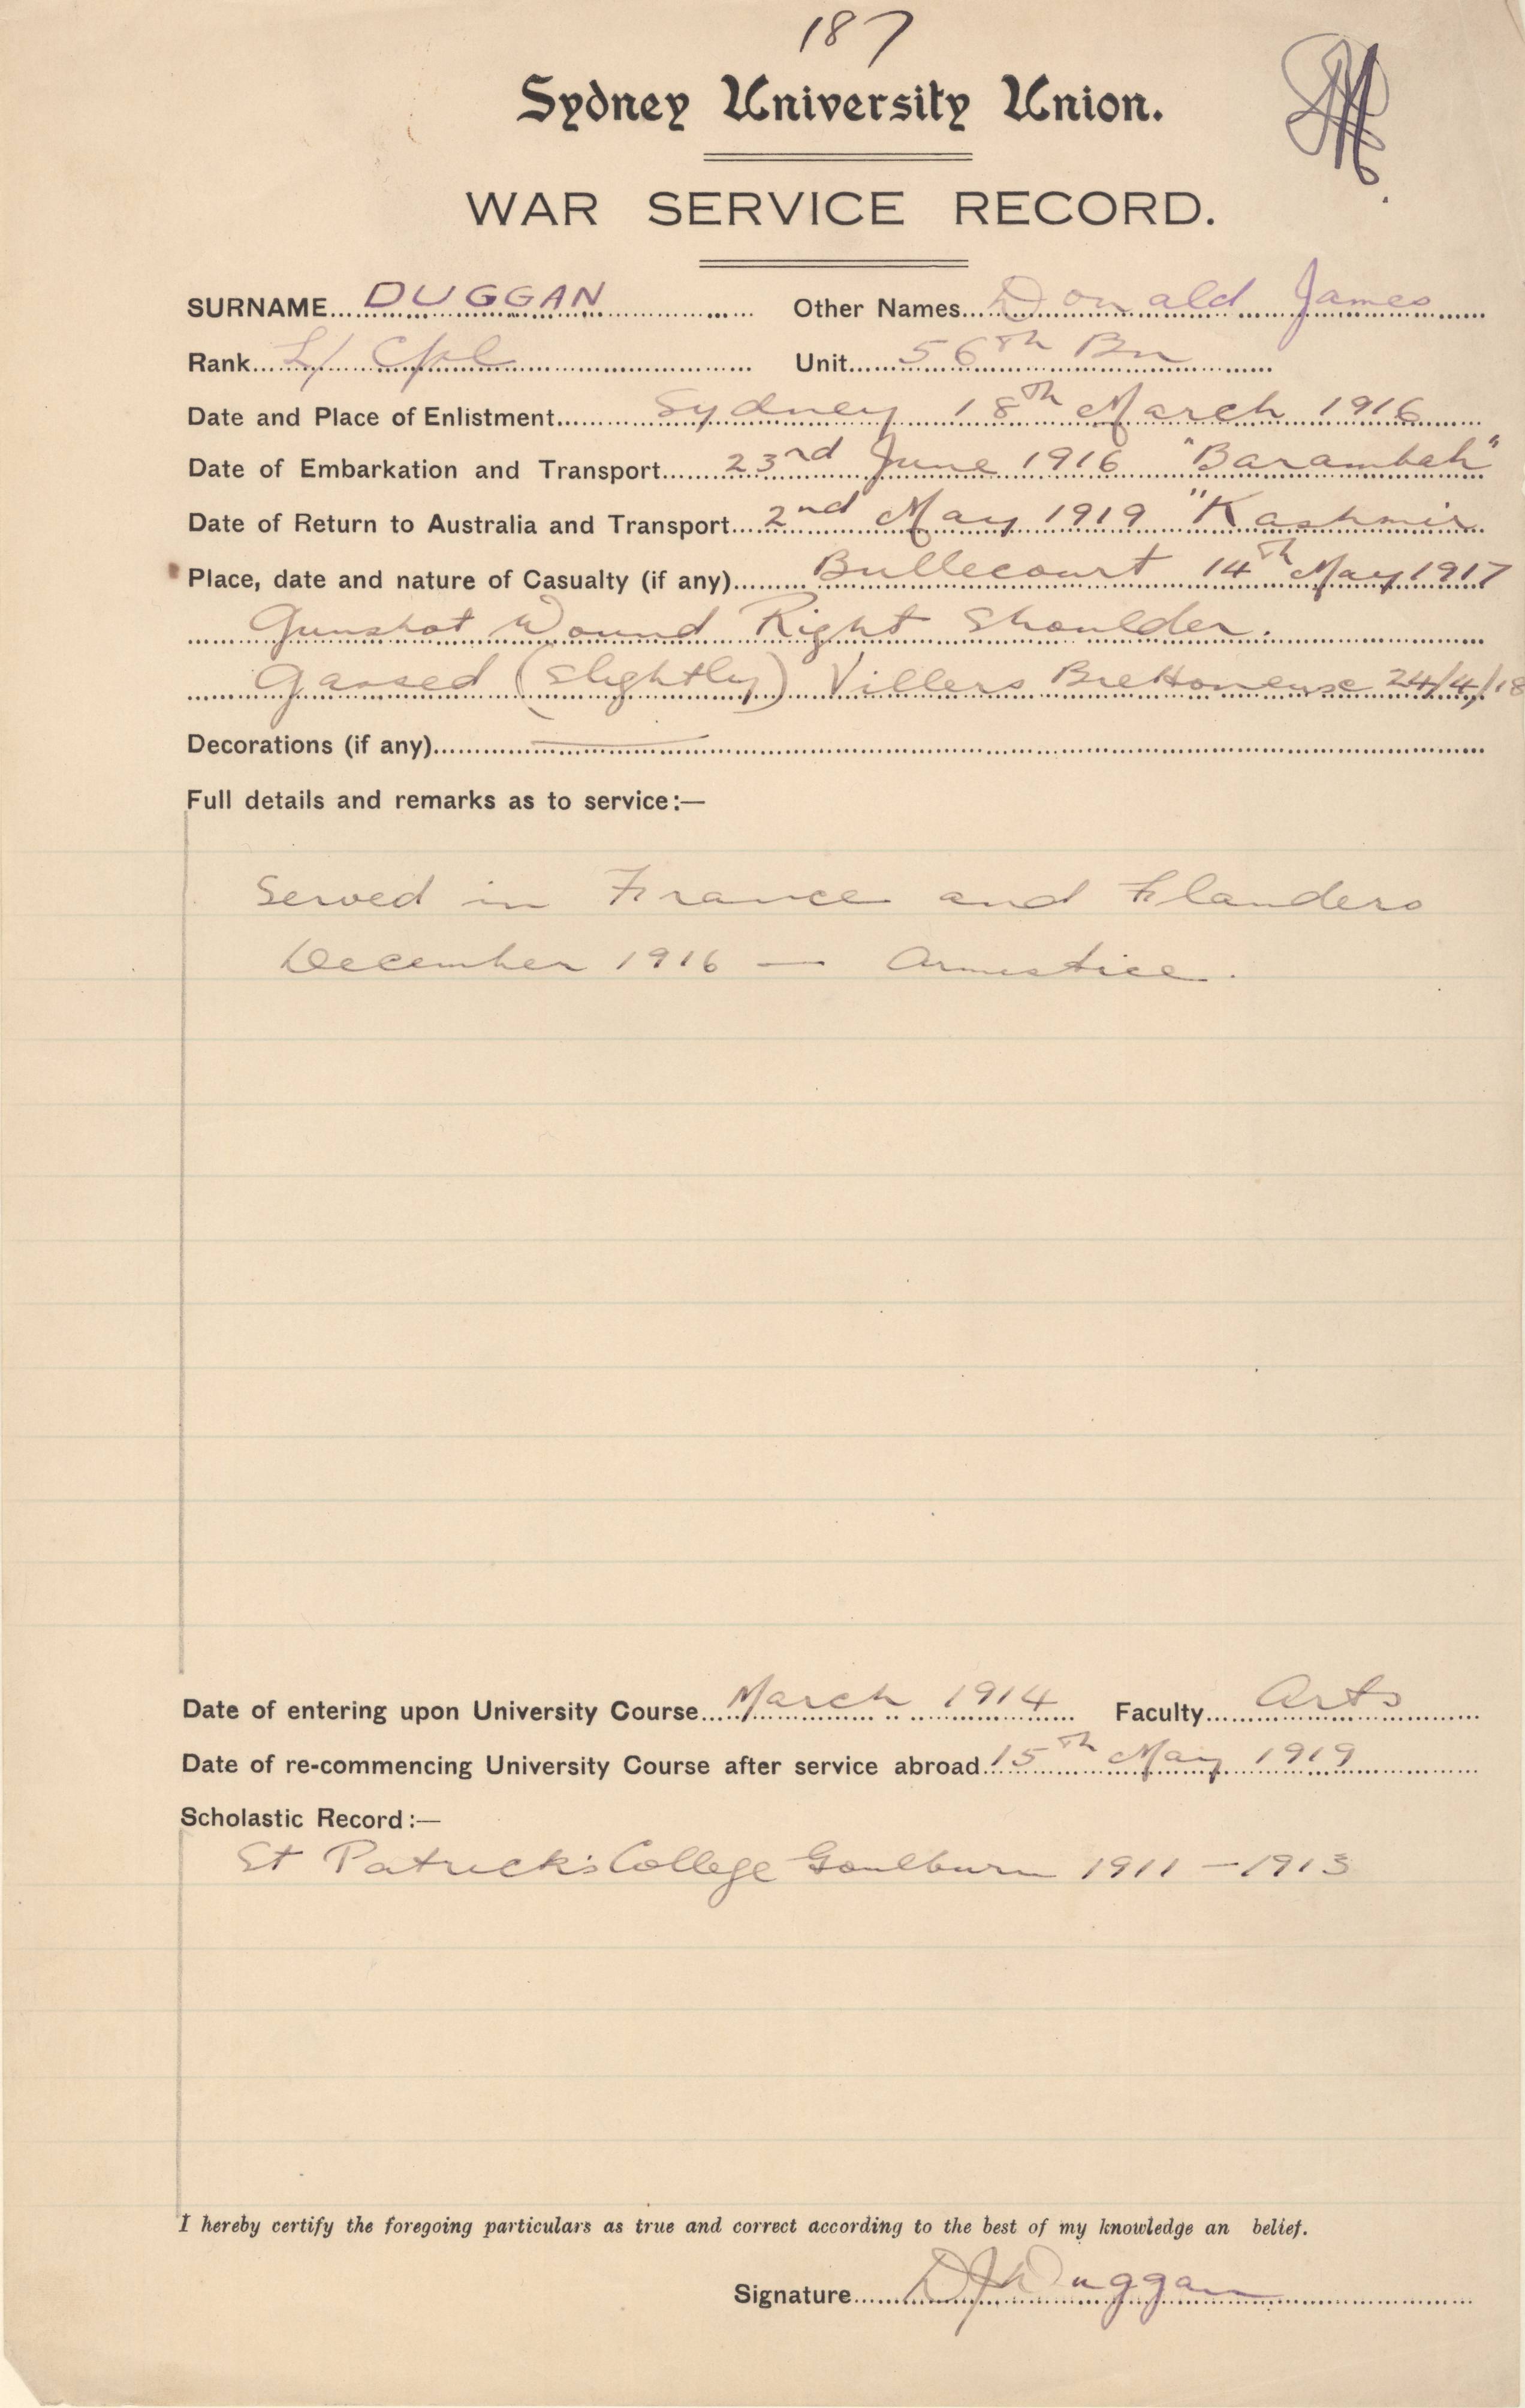 187
Sydney University Union.
WAR SERVICE RECORD.
SURNAME DUGGAN Other Names Donald James
Rank L/ Cpl Unit 56th Bn
Date and Place of Enlistment Sydney 18th March 1916
Date of Embarkation and Transport 23rd June 1916 "Barambah"
Date of Return to Australia and Transport 2nd May 1919 "Kashmir
Place, date and nature of Casualty (if any) Bullecourt 14th May 1917
Gunshot Wound Right Shoulder.
Gassed (slightly) Villers Bretonneuse 24/4/18
Decorations (if any) —
Full details and remarks as to service:—
Served in France and Flanders
December 1916 — Armistice.
Date of entering upon University Course March 1914 Faculty Arts
Date of re-commencing University Course after service abroad 15th May 1919
Scholastic Record:—
St Patrick's College Goulburn 1911 - 1913
I hereby certify the foregoing particulars as true and correct according to the best of my knowledge an belief.
Signature DJ Duggan